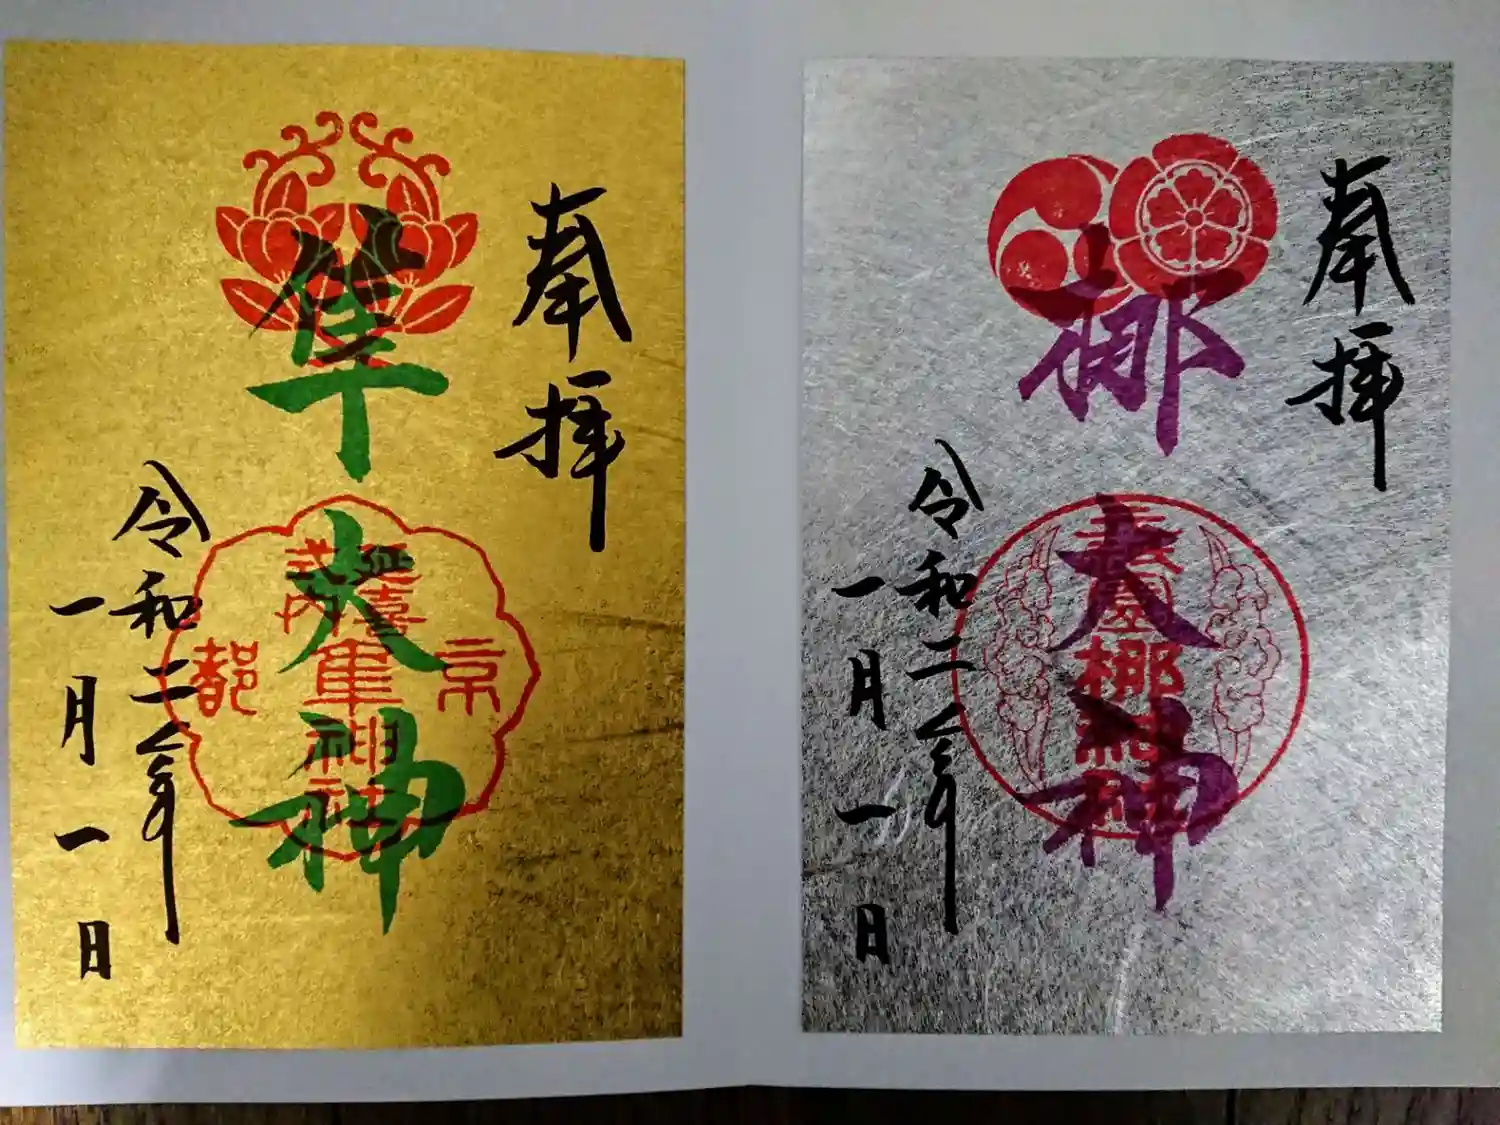 奉拝
梛大神
梛神社
令和二年
一月一日
奉拝
隼大神
京都
延喜
式内
隼神社
令和二年
一月一日